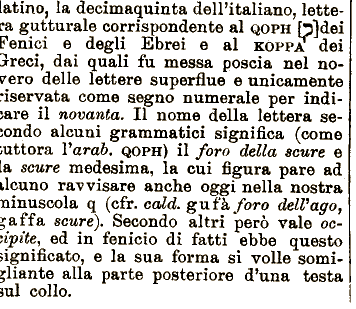 latino, la decimaquinta dell'italiano, lette-
ra gutturale corrispondente al QOPH [ק] dei
Fenici e degli Ebrei e al KOPPA dei
Greci, dai quali fu messa poscia nel no-
vero delle lettere superflue e unicamente
riservata come segno numerale per indi-
care il novanta. Il nome della lettera se-
condo alcuni grammatici significa (come
tuttora l'arab. QOPH) il foro della scure e
la scure medesima, la cui figura pare ad
alcuno ravvisare anche oggi nella nostra
minuscola q (cfr. cald. gufà foro dell'ago,
gaffa scure). Secondo altri però vale oc-
cipite, ed in fenicio di fatti ebbe questo
significato, e la sua forma si volle somi-
gliante alla parte posteriore d'una testa
sul collo.